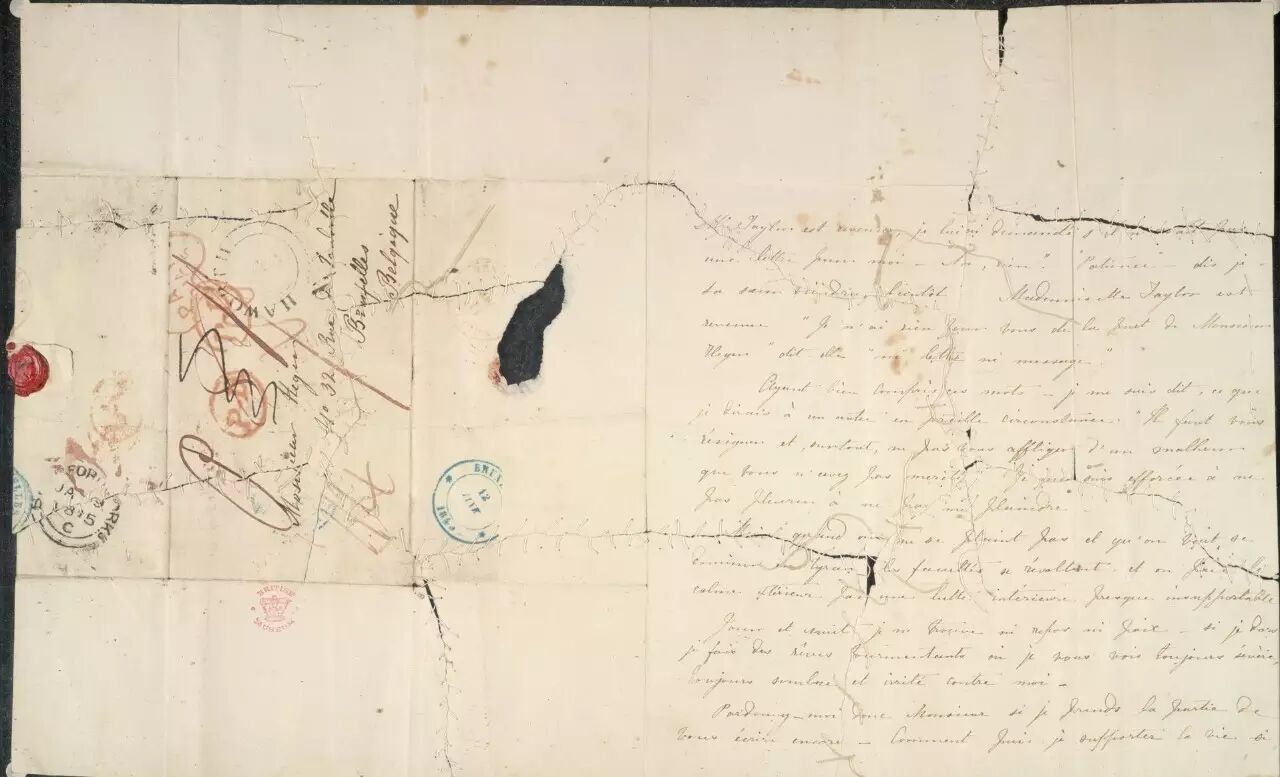 Monsieur Heger
No 32 Rue d'Isabelle
Bruxelles
Belgique
PAID
HAWORTH
PD
JA
1845
C
BRUX
12
184
BRITISH
MUSEUM
Mr Taylor est revenu, je lui ai demandé s'il n'avait pas
une lettre pour moi – "Non, rien." "Patience" – dis-je –
sa sœur viendra bientôt – Mademoiselle Taylor est
revenue "Je n'ai rien pour vous de la part de Monsieur
Heger" dit elle "ni lettre ni message."
Ayant bien compris ces mots – je me suis dit, ce que
je dirais à un autre en pareille circonstance. "Il faut vous
résigner et, surtout, ne pas vous affliger d'un malheur
que vous n'avez pas mérité." Je me suis efforcée à ne
pas pleurer à ne pas me plaindre –
Mais quand on ne se plaint pas et qu'on veut se
en tyran – les facultés se révoltent – et on paie le
calme extérieur par une lutte intérieure presque insupportable
Jour et nuit je ne trouve ni repos ni paix – si je dors
je fais des rêves tourmentants où je vous vois toujours sévère,
toujours sombre et irrité contre moi –
Pardonnez-moi donc Monsieur si je prends la partie de
vous écrire encore – Comment puis-je supporter la vie si